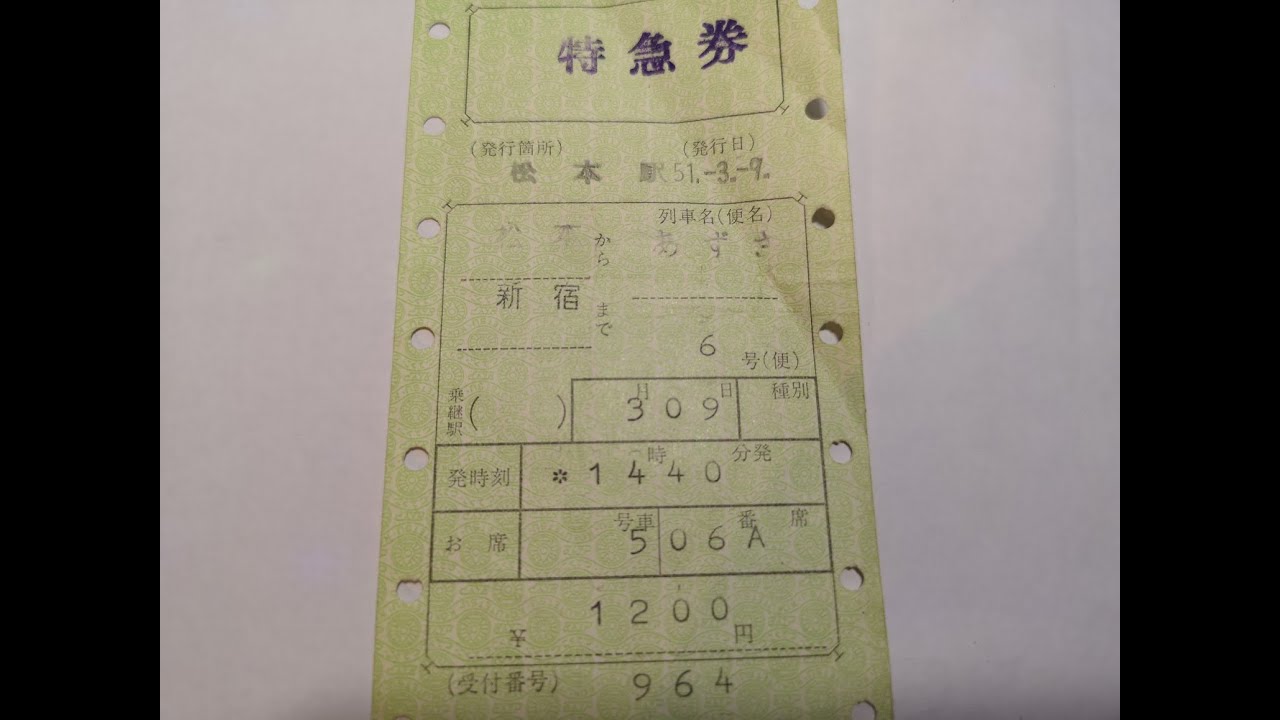 特急券
(発行箇所) (発行日)
松本駅 51.-3.-9.
列車名(便名)
松本 から あずさ
新宿 まで
6 号(便)
乗継駅( ) 月 日 種別
309
時 分発
発時刻 *1440
号車 番 席
お 席 5 06A
1200
¥ 円
(受付番号) 964